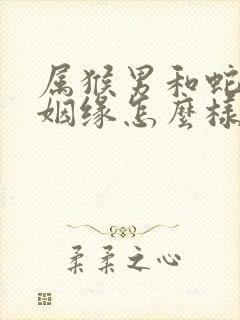 属猴男和蛇
姻缘怎麼様
柔柔之心